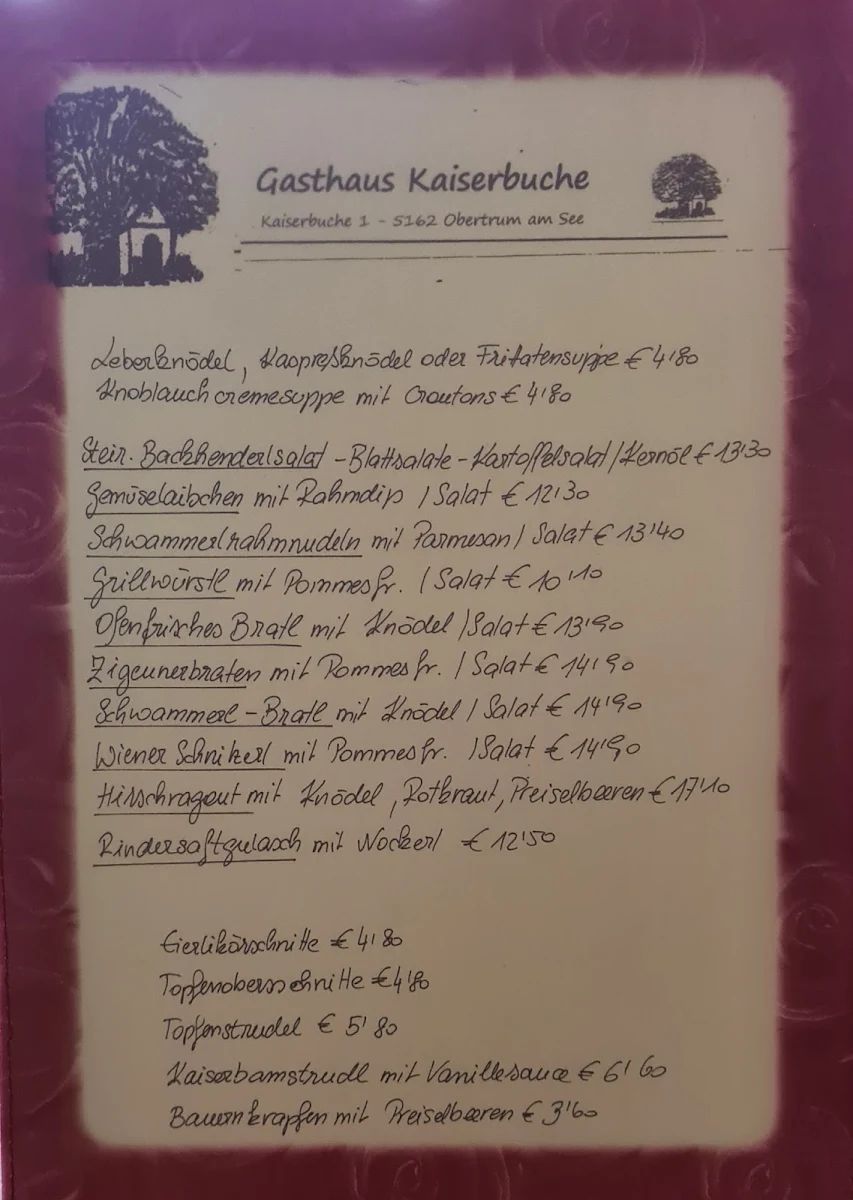 Gasthaus Kaiserbuche
Kaiserbuche 1 - 5162 Obertrum am See
Leberknödel, Kaspreßknödel oder Fritatensuppe € 4'80
Knoblauchcremesuppe mit Croutons € 4'80
Steir. Backhenderlsalat - Blattsalate - Kartoffelsalat / Kernöl € 13'30
Gemüselaibchen mit Rahmdip / Salat € 12'30
Schwammerlrahmnudeln mit Parmesan / Salat € 13'40
Grillwürstl mit Pommes fr. / Salat € 10'10
Ofenfrisches Bratl mit Knödel / Salat € 13'90
Zigeunerbraten mit Pommes fr. / Salat € 14'90
Schwammerl - Bratl mit Knödel / Salat € 14'90
Wiener Schnitzerl mit Pommes fr. / Salat € 14'90
Hirschragout mit Knödel, Rotkraut, Preiselbeeren € 17'10
Rindersaftgulasch mit Nockerl € 12'50
Eierlikörschnitte € 4'80
Topfenobersschnitte € 4'80
Topfenstrudel € 5'80
Kaiserbamstrudl mit Vanillesauce € 6'60
Bauernkrapfen mit Preiselbeeren € 3'60